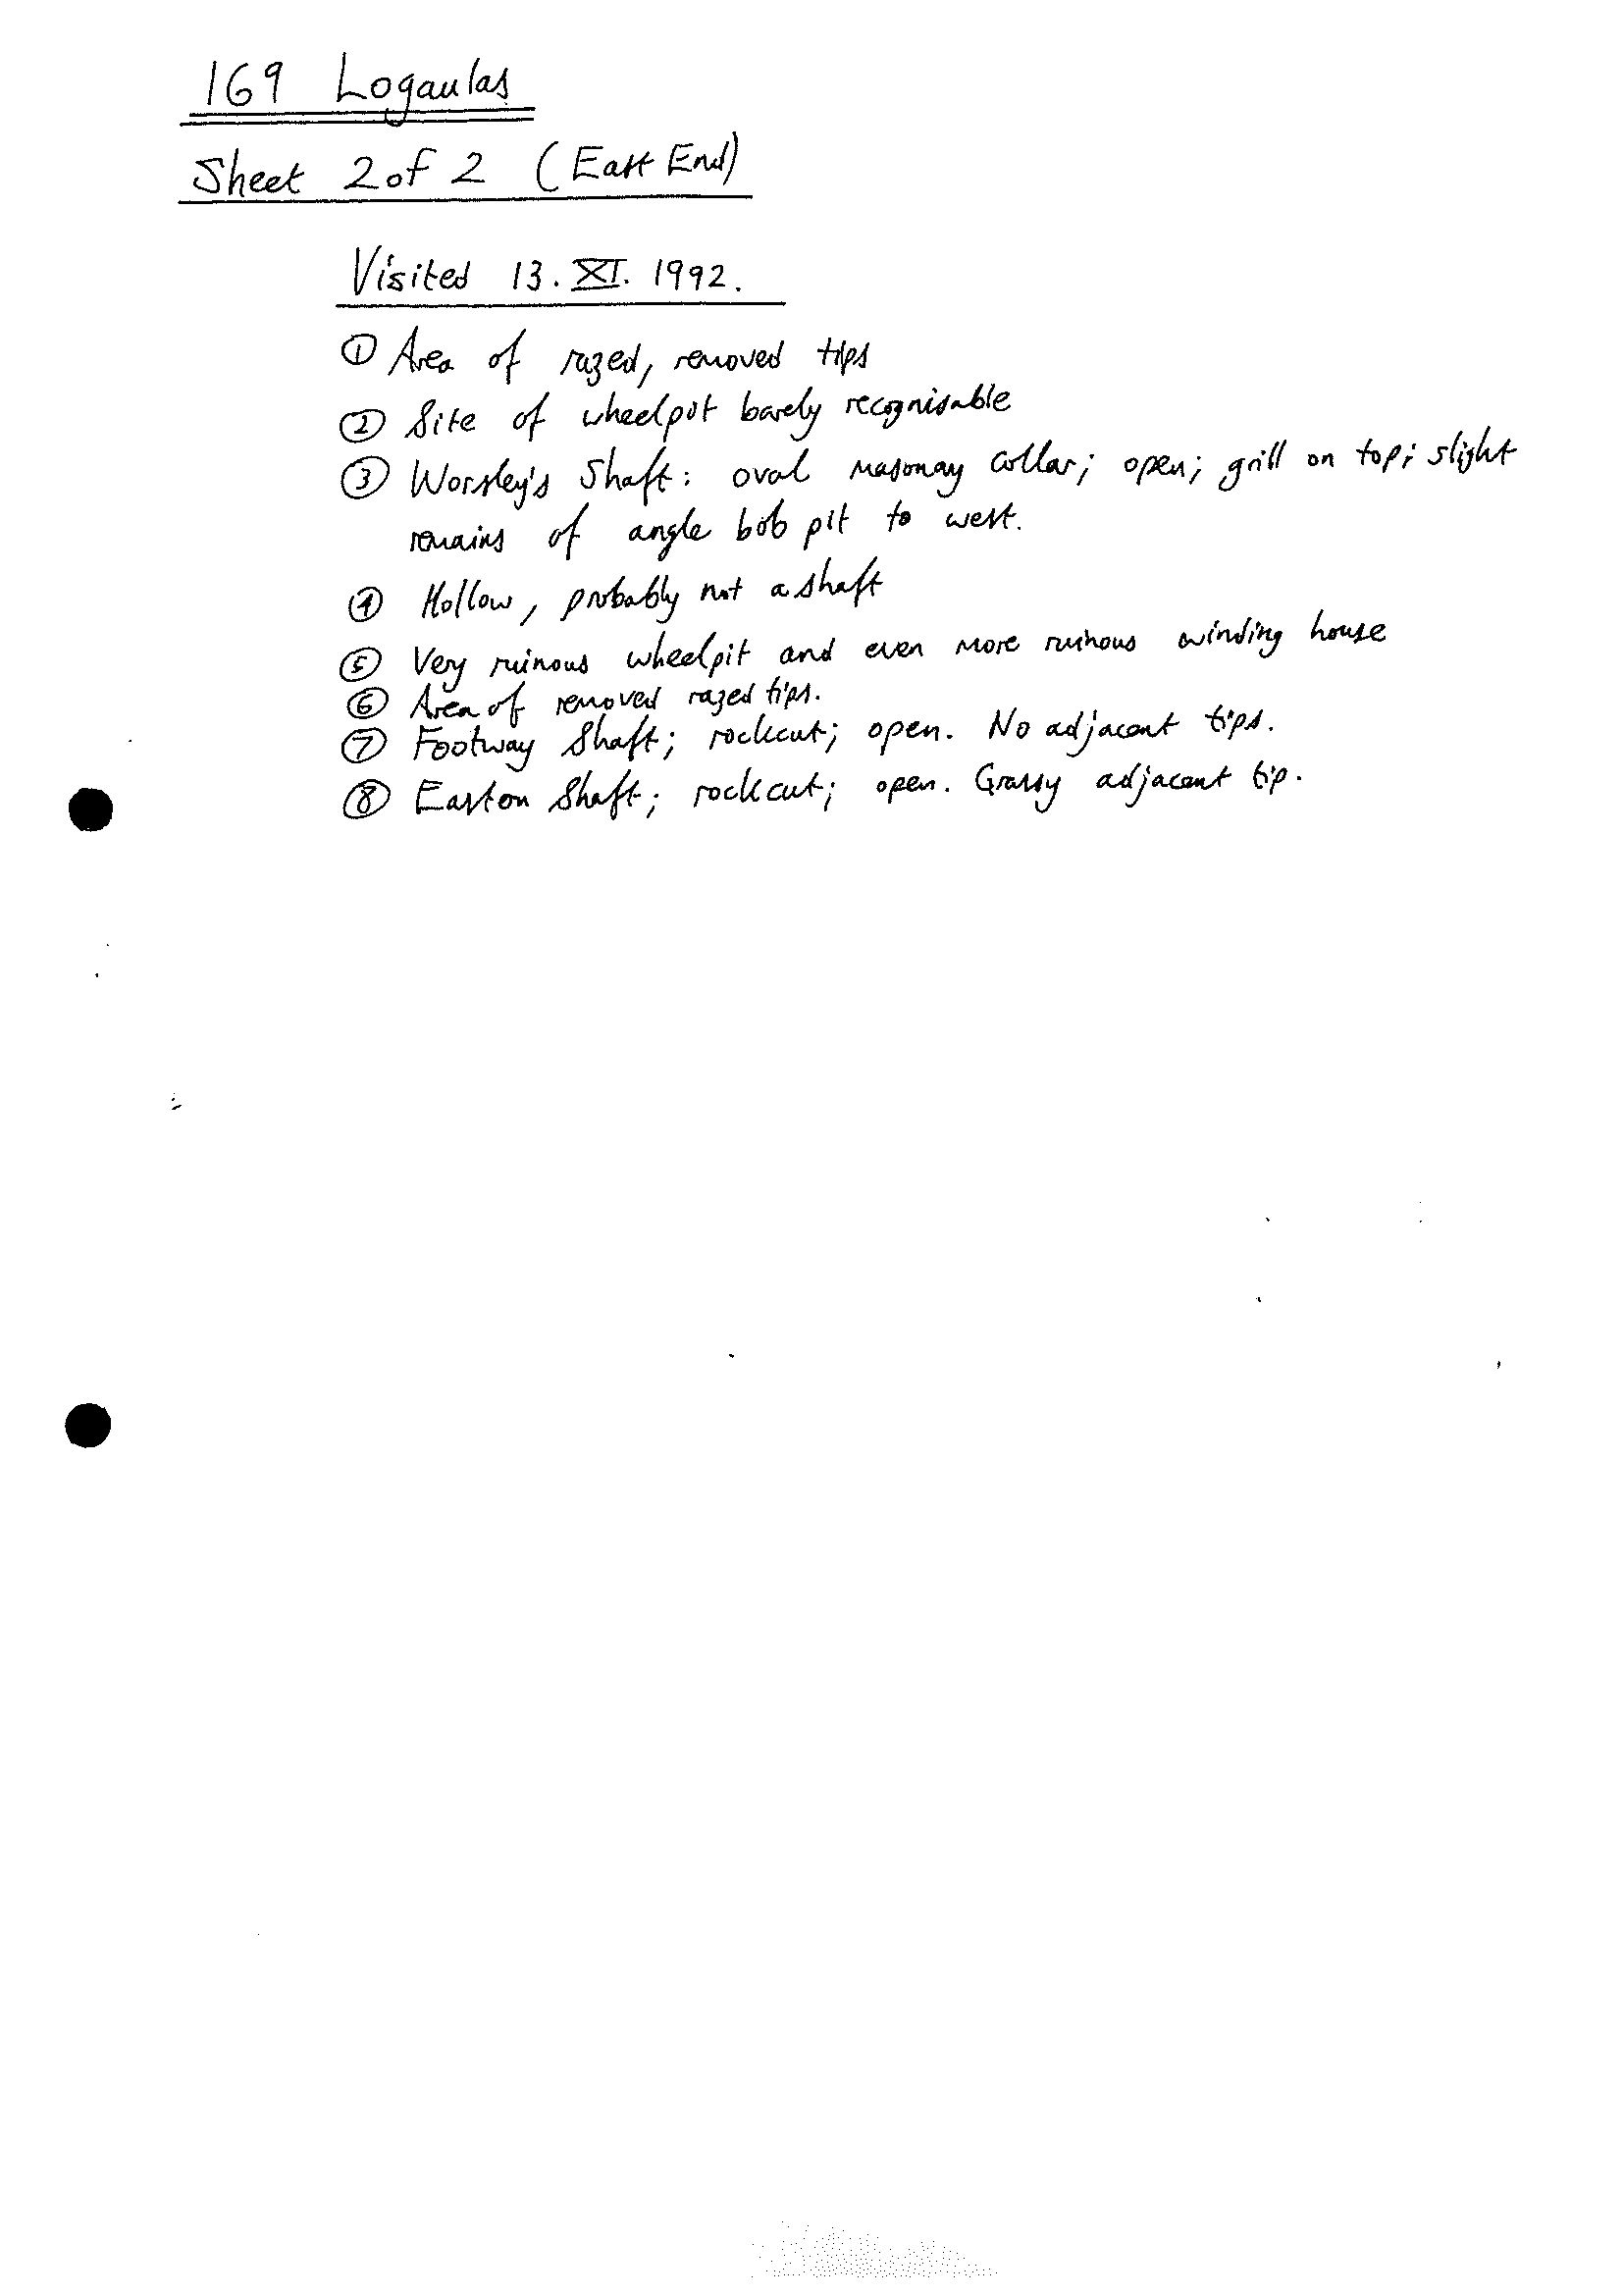 169 Logaulas
Sheet 2 of 2 (East End)
Visited 13. XI. 1992.
① Area of razed, removed tips
② Site of wheelpit barely recognisable
③ Worsley's Shaft: oval masonay collar; open; grill on top; slight
remains of angle bob pit to west.
④ Hollow, probably not a shaft
⑤ Very ruinous wheelpit and even more ruinous winding house
⑥ Area of removed razed tips.
⑦ Footway Shaft; rockcut; open. No adjacent tips.
⑧ Easton Shaft; rockcut; open. Grassy adjacent tip.